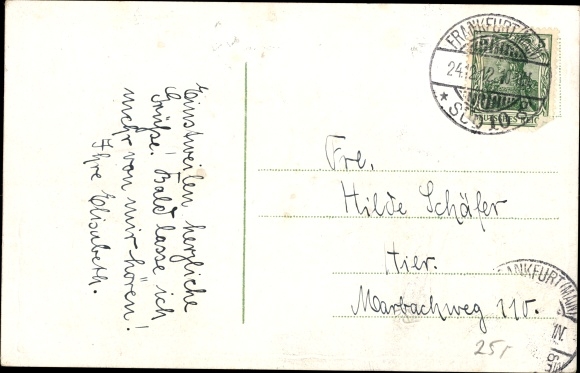 Einstweilen herzliche
Grüße! Bald lasse ich
mehr von mir hören!
Ihre Elisabeth.
FRANKFURT (MAIN)
24.12.12
* SÜD
Fre.
Hilde Schäfer
Hier.
Marbachweg 110.
FRANKFURT (MAIN)
25